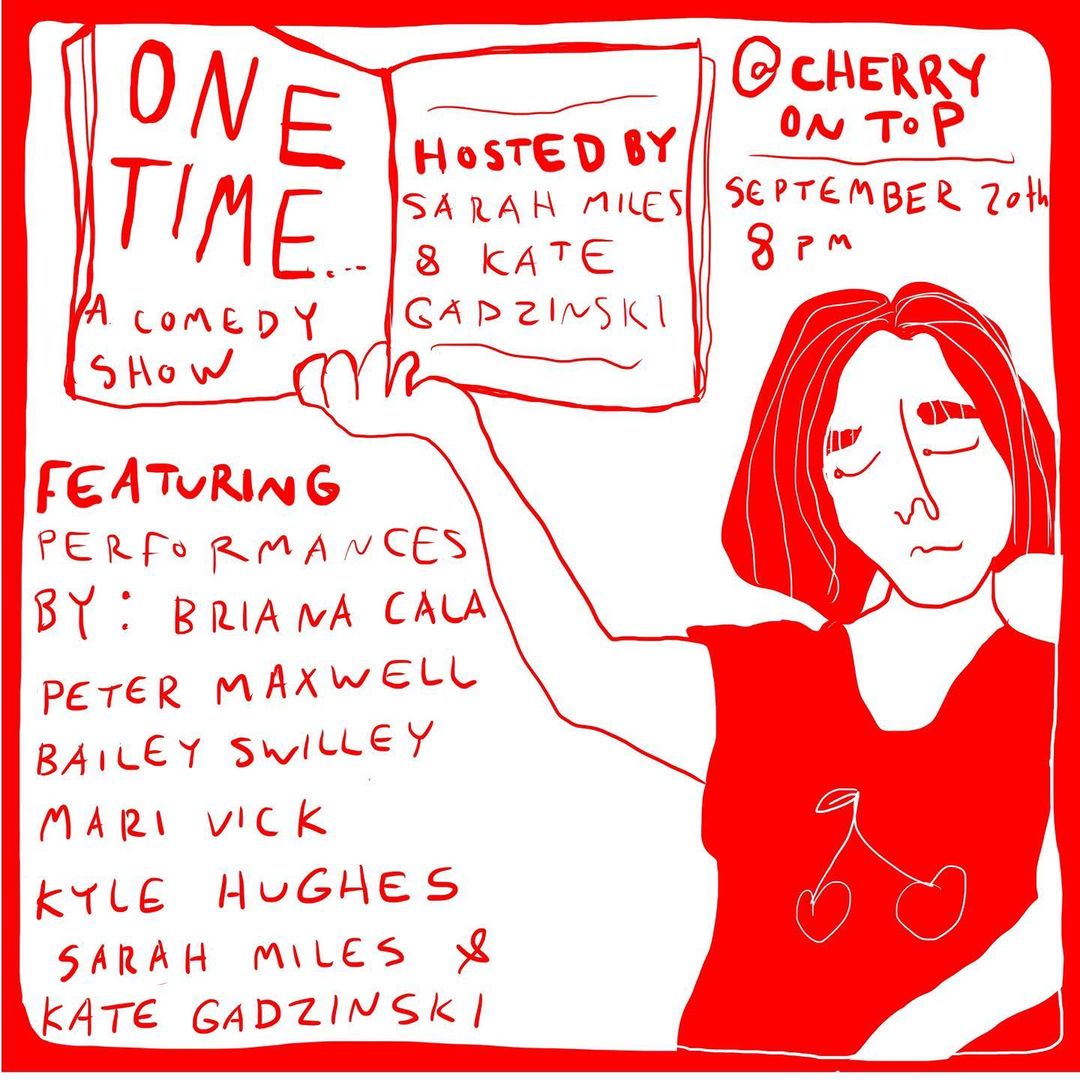 ONE
TIME...
A COMEDY
SHOW
HOSTED BY
SARAH MILES
& KATE
GADZINSKI
@ CHERRY
ON TOP
SEPTEMBER 20th
8 PM
FEATURING
PERFORMANCES
BY: BRIANA CALA
PETER MAXWELL
BAILEY SWILLEY
MARI VICK
KYLE HUGHES
SARAH MILES &
KATE GADZINSKI